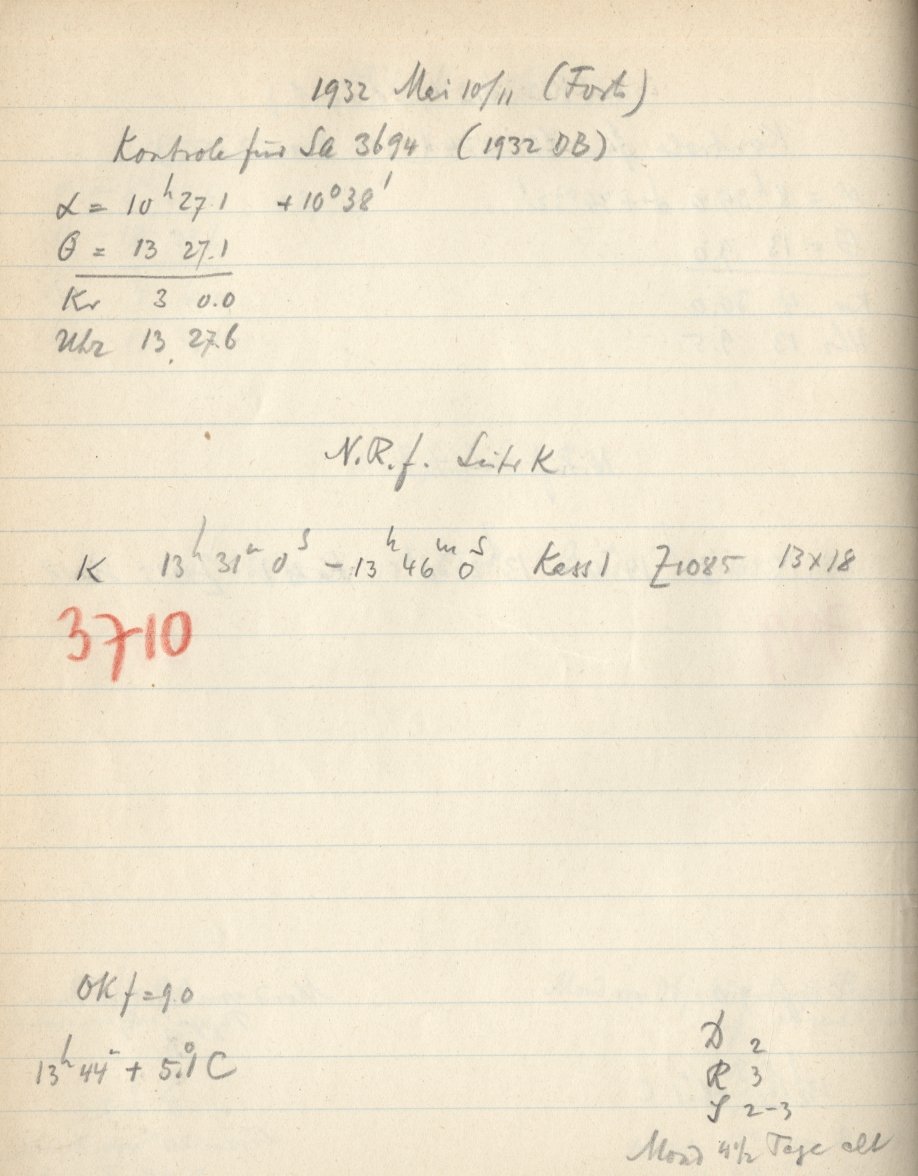 1932 Mai 10/11 (Forts)
Kontrole für Sa 3694 (1932 DB)
α = 10ʰ 27.1 +10°38'
θ = 13 27.1
Kr 3 0.0
Uhr 13 27.6
N.R.f. Seite K
K 13ʰ 31ᵐ 0ˢ – 13ʰ 46ᵐ 0ˢ Kass 1 Z1085 13x18
3710
OK f = 9.0
13ʰ 44ᵐ + 5.°1 C
D 2
R 3
S 2-3
Mond 4½ Tage alt